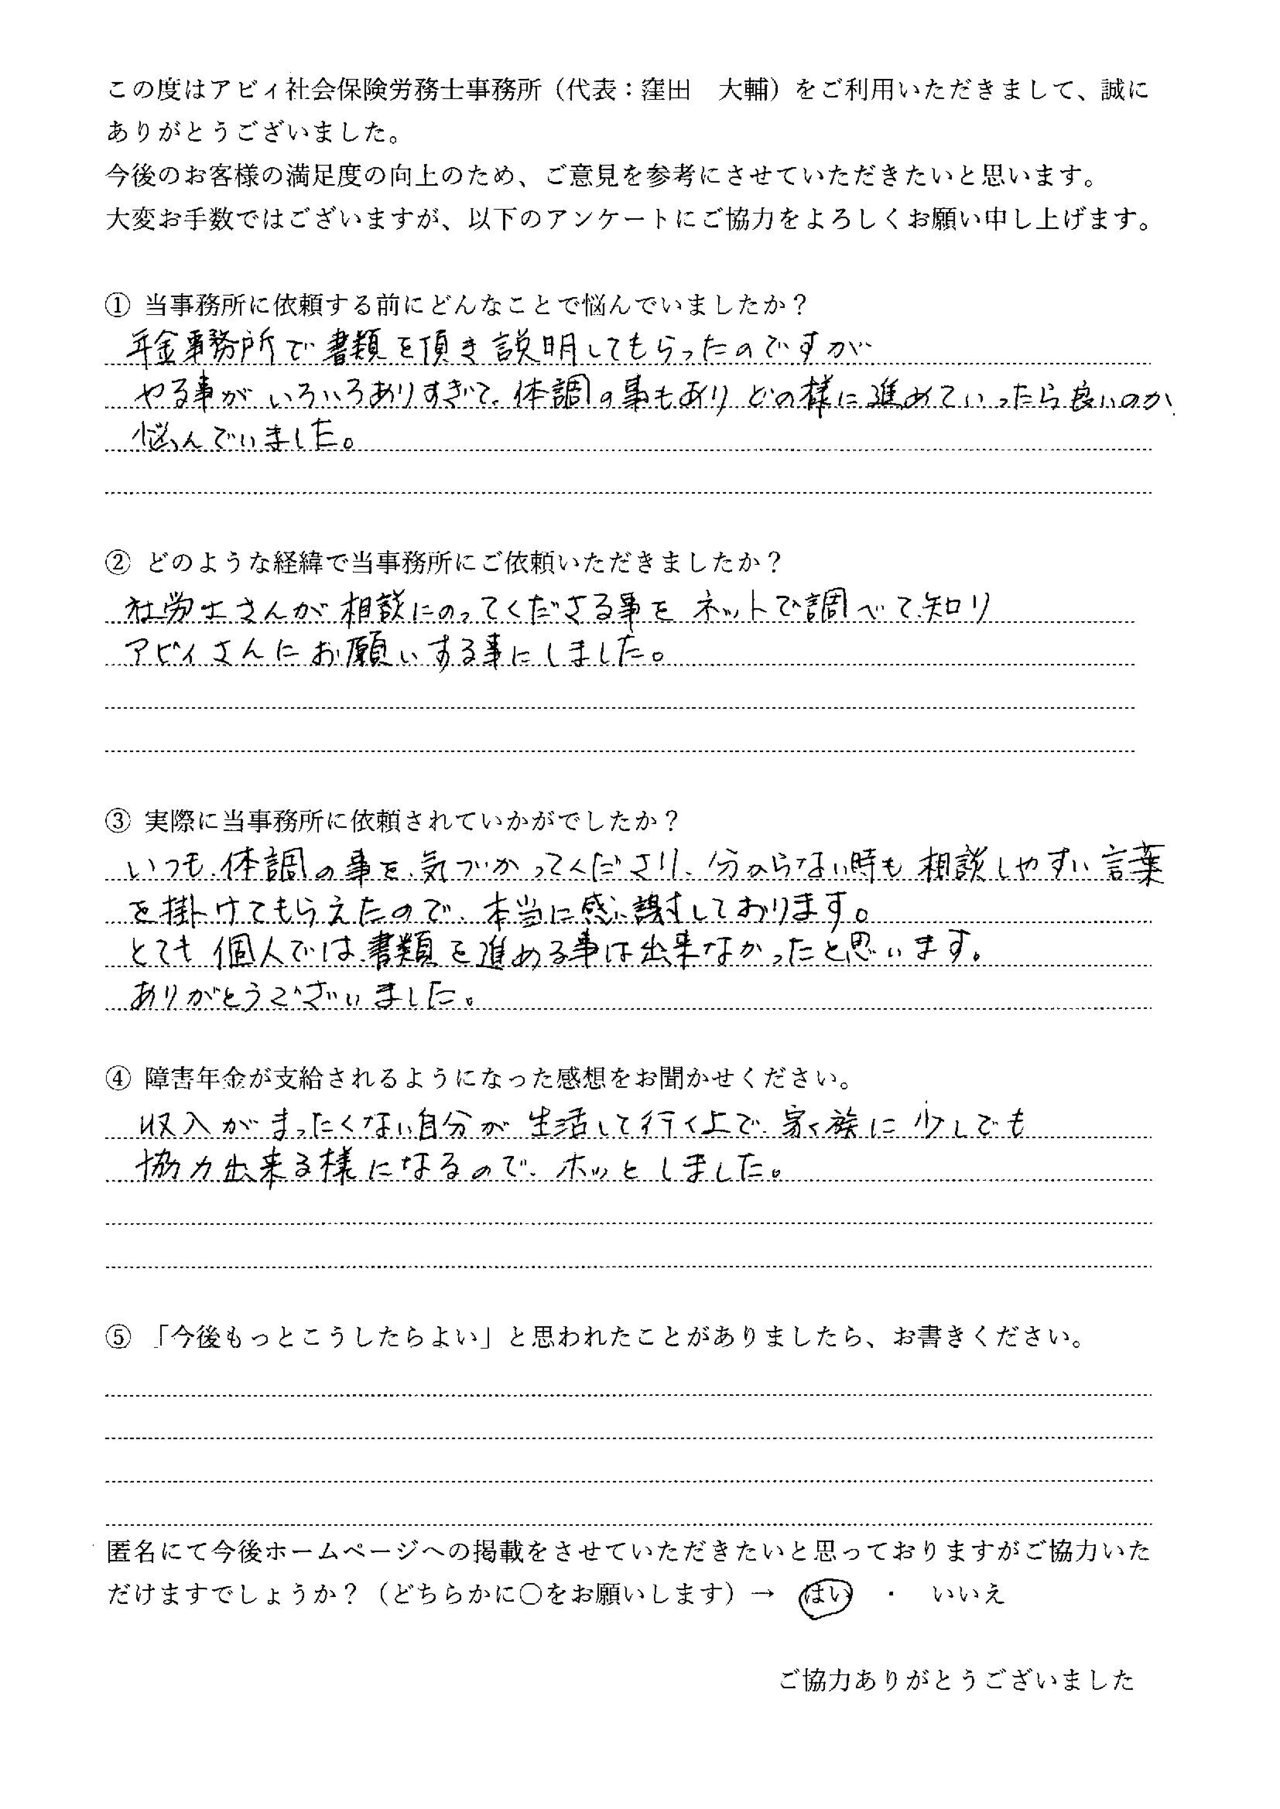 この度はアビィ社会保険労務士事務所（代表：窪田　大輔）をご利用いただきまして、誠に
ありがとうございました。
今後のお客様の満足度の向上のため、ご意見を参考にさせていただきたいと思います。
大変お手数ではございますが、以下のアンケートにご協力をよろしくお願い申し上げます。
① 当事務所に依頼する前にどんなことで悩んでいましたか？
年金事務所で書類を頂き説明してもらったのですが
やる事がいろいろありすぎて、体調の事もありどの様に進めていったら良いのか
悩んでいました。
② どのような経緯で当事務所にご依頼いただきましたか？
社労士さんが相談にのってくださる事をネットで調べて知り
アビィさんにお願いする事にしました。
③ 実際に当事務所に依頼されていかがでしたか？
いつも体調の事を気づかってくださり、分からない時も相談しやすい言葉
を掛けてもらえたので、本当に感謝しております。
とても個人では書類を進める事は出来なかったと思います。
ありがとうございました。
④ 障害年金が支給されるようになった感想をお聞かせください。
収入がまったくない自分が生活して行く上で、家族に少しでも
協力出来る様になるので、ホッとしました。
⑤ 「今後もっとこうしたらよい」と思われたことがありましたら、お書きください。
匿名にて今後ホームページへの掲載をさせていただきたいと思っておりますがご協力いた
だけますでしょうか？（どちらかに〇をお願いします）→　はい　・　いいえ
ご協力ありがとうございました